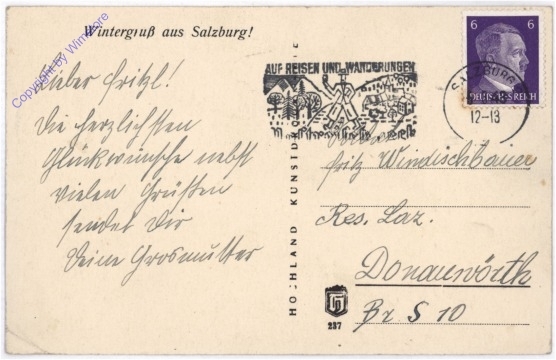 Wintergruß aus Salzburg!
Copyright by Wimstore
Lieber Fritzl!
Die herzlichsten
Glückwünsche nebst
vielen Grüßen
sendet Dir
Deine Grosmutter
HOCHLAND KUNSTD
237
AUF REISEN UND WANDERUNGEN
SALZBURG
12-13
6 6
DEUTSCHES REICH
Fritz Windischbauer
Res. Laz.
Donauwörth
Br S 10